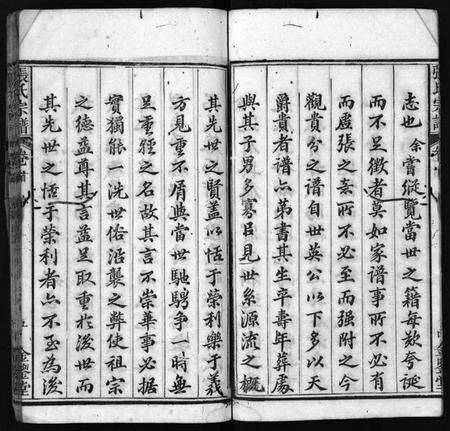 張氏宗譜
志也余嘗縱覽當世之籍每放夸誕
而不足徵者莫如家譜事所不必有
而虛張之妄所不必至而强附之今
觀貴分之譜自世英公以下多以天
爵貴者譜亦弟書其生卒壽年葬處
與其子男多寡㠯見世系源流之概
其先世之賢蓋以恬于榮利樂于義
方見重不屑與當世馳騁爭一時無
足重輕之名故其言不崇華事必據
實獨能一洗世俗沿襲之弊使祖宗
之德益尊其言益足取重於後世而
其先世之恬于榮利者亦不至為後
張氏宗譜 卷首 五 金鑒堂